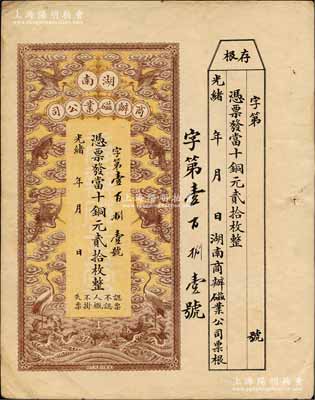 存根
字第
號
憑票發當十銅元貳拾枚整
光緒 年 月 日 湖南商辦磁業公司票根
字第壹百捌壹號
湖南
商辦磁業公司
字第壹百捌壹號
憑票發當十銅元貳拾枚整
光緒 年 月 日
認票
不認
人概
不掛
失票
上海陽明拍卖